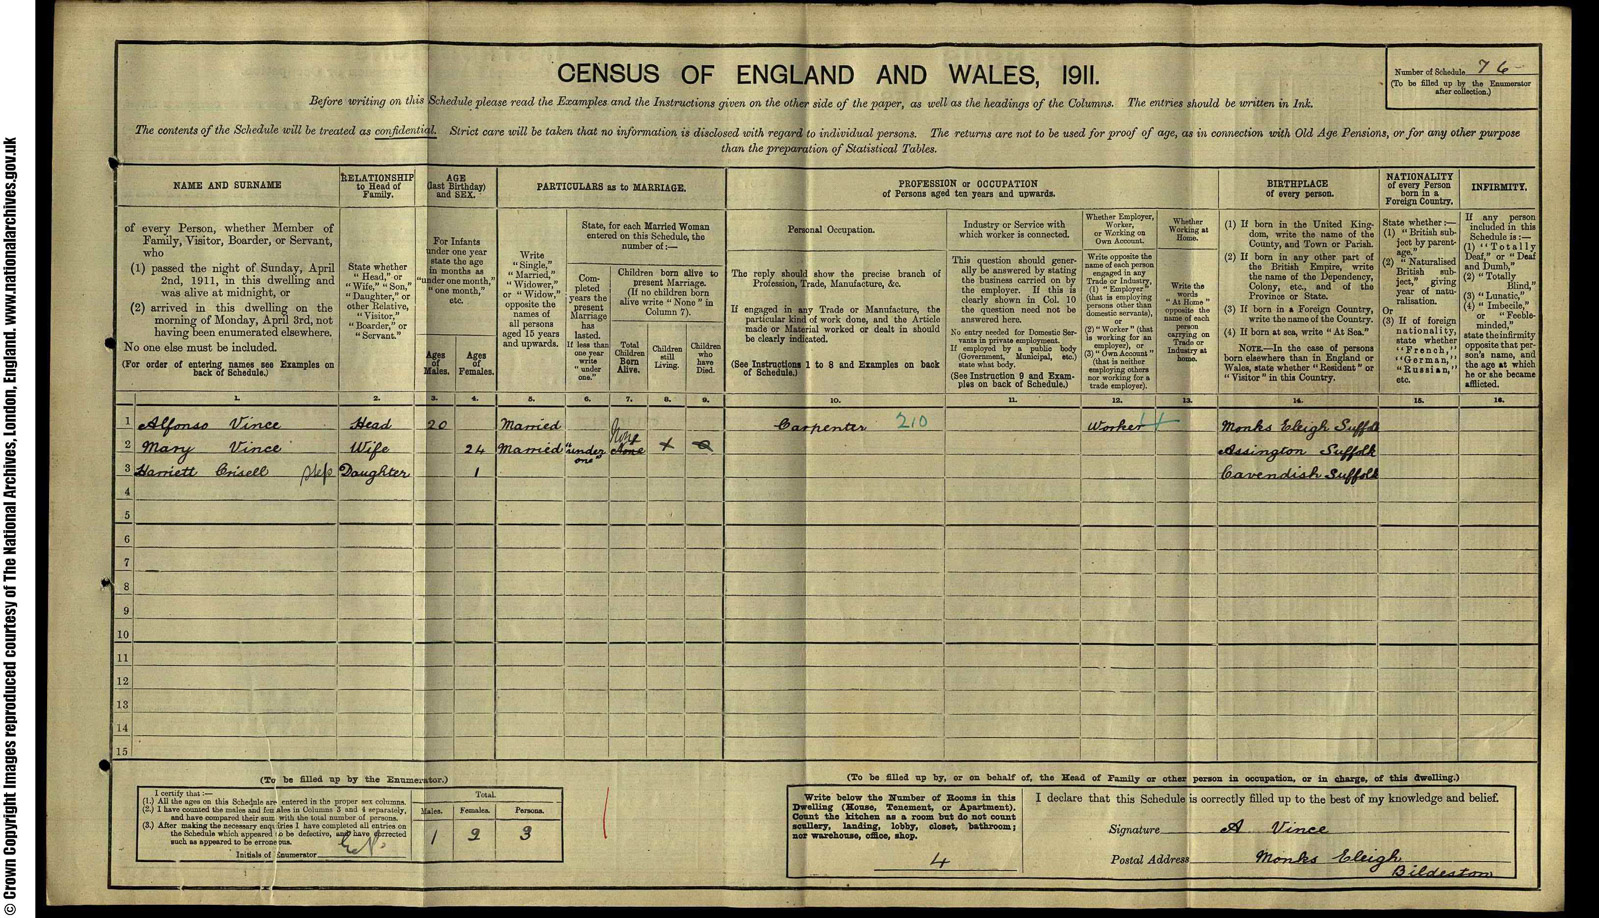 © Crown Copyright Images reproduced courtesy of The National Archives, London, England. www.nationalarchives.gov.uk
CENSUS OF ENGLAND AND WALES, 1911.
Number of Schedule 76
(To be filled up by the Enumerator
after collection.)
Before writing on this Schedule please read the Examples and the Instructions given on the other side of the paper, as well as the headings of the Columns. The entries should be written in Ink.
The contents of the Schedule will be treated as confidential. Strict care will be taken that no information is disclosed with regard to individual persons. The returns are not to be used for proof of age, as in connection with Old Age Pensions, or for any other purpose
than the preparation of Statistical Tables.
NAME AND SURNAME
of every Person, whether Member of
Family, Visitor, Boarder, or Servant,
who
(1) passed the night of Sunday, April
2nd, 1911, in this dwelling and
was alive at midnight, or
(2) arrived in this dwelling on the
morning of Monday, April 3rd, not
having been enumerated elsewhere.
No one else must be included.
(For order of entering names see Examples on
back of Schedule.)
RELATIONSHIP
to Head of
Family.
State whether
"Head," or
"Wife," "Son,"
"Daughter," or
other Relative,
"Visitor,"
"Boarder," or
"Servant."
AGE
(last Birthday)
and SEX.
For Infants
under one year
state the age
in months as
"under one month,"
"one month,"
etc.
Ages
of
Males.
Ages
of
Females.
PARTICULARS as to MARRIAGE.
Write
"Single,"
"Married,"
"Widower,"
or "Widow,"
opposite the
names of
all persons
aged 15 years
and upwards.
State, for each Married Woman
entered on this Schedule, the
number of:—
Com-
pleted
years the
present
Marriage
has
lasted.
If less than
one year
write
"under
one."
Children born alive to
present Marriage.
(If no children born
alive write "None" in
Column 7).
Total
Children
Born
Alive.
Children
still
Living.
Children
who
have
Died.
PROFESSION or OCCUPATION
of Persons aged ten years and upwards.
Personal Occupation.
The reply should show the precise branch of
Profession, Trade, Manufacture, &c.
If engaged in any Trade or Manufacture, the
particular kind of work done, and the Article
made or Material worked or dealt in should
be clearly indicated.
(See Instructions 1 to 8 and Examples on back
of Schedule.)
Industry or Service with
which worker is connected.
This question should gener-
ally be answered by stating
the business carried on by
the employer. If this is
clearly shown in Col. 10
the question need not be
answered here.
No entry needed for Domestic Ser-
vants in private employment.
If employed by a public body
(Government, Municipal, etc.)
state what body.
(See Instruction 9 and Exam-
ples on back of Schedule.)
Whether Employer,
Worker,
or Working on
Own Account.
Write opposite the
name of each person
engaged in any
Trade or Industry,
(1) "Employer"
(that is employing
persons other than
domestic servants),
or
(2) "Worker" (that
is working for an
employer), or
(3) "Own Account"
(that is neither
employing others
nor working for a
trade employer).
Whether
Working at
Home.
Write the
words
"At Home"
opposite the
name of each
person
carrying on
Trade or
Industry at
home.
BIRTHPLACE
of every person.
(1) If born in the United King-
dom, write the name of the
County, and Town or Parish.
(2) If born in any other part of
the British Empire, write
the name of the Dependency,
Colony, etc., and of the
Province or State.
(3) If born in a Foreign Country,
write the name of the Country.
(4) If born at sea, write "At Sea."
NOTE.—In the case of persons
born elsewhere than in England or
Wales, state whether "Resident" or
"Visitor" in this Country.
NATIONALITY
of every Person
born in a
Foreign Country.
State whether:—
(1) "British sub-
ject by parent-
age."
(2) "Naturalised
British sub-
ject," giving
year of natu-
ralisation.
Or
(3) If of foreign
nationality,
state whether
"French,"
"German,"
"Russian,"
etc.
INFIRMITY.
If any person
included in this
Schedule is:—
(1) "Totally
Deaf," or "Deaf
and Dumb,"
(2) "Totally
Blind,"
(3) "Lunatic,"
(4) "Imbecile,"
or "Feeble-
minded,"
state the infirmity
opposite that per-
son's name, and
the age at which
he or she became
afflicted.
1. 2. 3. 4. 5. 6. 7. 8. 9. 10. 11. 12. 13. 14. 15. 16.
1 Alfonso Vince Head 20 Married Carpenter 210 Worker Monks Eleigh Suffolk
2 Mary Vince Wife 24 Married "under one" None None Assington Suffolk
3 Harriett Crisell step Daughter 1 Cavendish Suffolk
4
5
6
7
8
9
10
11
12
13
14
15
(To be filled up by the Enumerator.)
I certify that:—
(1.) All the ages on this Schedule are entered in the proper sex columns.
(2.) I have counted the males and females in Columns 3 and 4 separately,
and have compared their sum with the total number of persons.
(3.) After making the necessary enquiries I have completed all entries on
the Schedule which appeared to be defective, and have corrected
such as appeared to be erroneous.
Initials of Enumerator
Total.
Males. Females. Persons.
1 2 3
(To be filled up by, or on behalf of, the Head of Family or other person in occupation, or in charge, of this dwelling.)
Write below the Number of Rooms in this
Dwelling (House, Tenement, or Apartment).
Count the kitchen as a room but do not count
scullery, landing, lobby, closet, bathroom;
nor warehouse, office, shop.
4
I declare that this Schedule is correctly filled up to the best of my knowledge and belief.
Signature A Vince
Postal Address Monks Eleigh
Bildeston